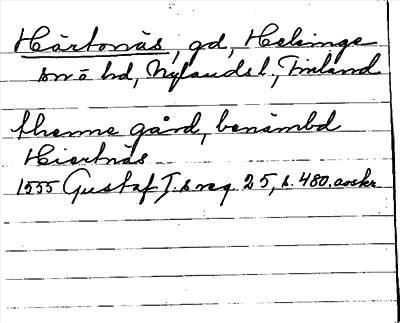 Härtonäs, gd, Helsinge
sn o hd, Nylands l., Finland
thenne gård, benämbd
Hiertnäs
1555 Gustaf I:s reg 25, s. 480. avskr.